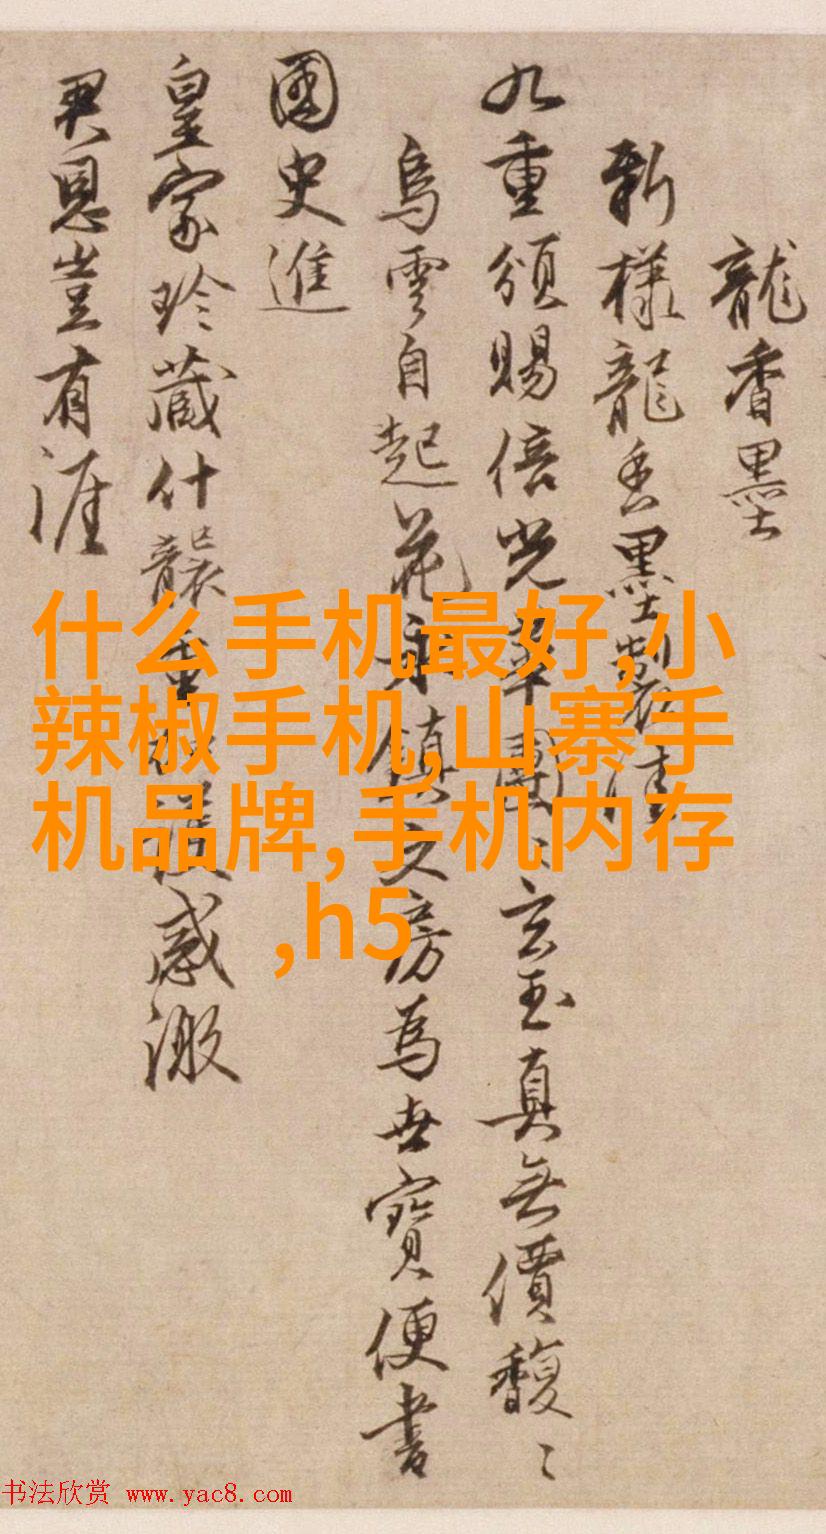 龍香墨
新樣龍香墨製精
九重頒賜倍光華團〻玄玉真無價馥〻
烏雲自起花永鎮文房為世寶便書
國史進
皇家珍藏什襲重
感激
君恩豈有涯
什么手机最好,小
辣椒手机,山寨手
机品牌,手机内存
,h5
书法欣赏 www.yac8.com